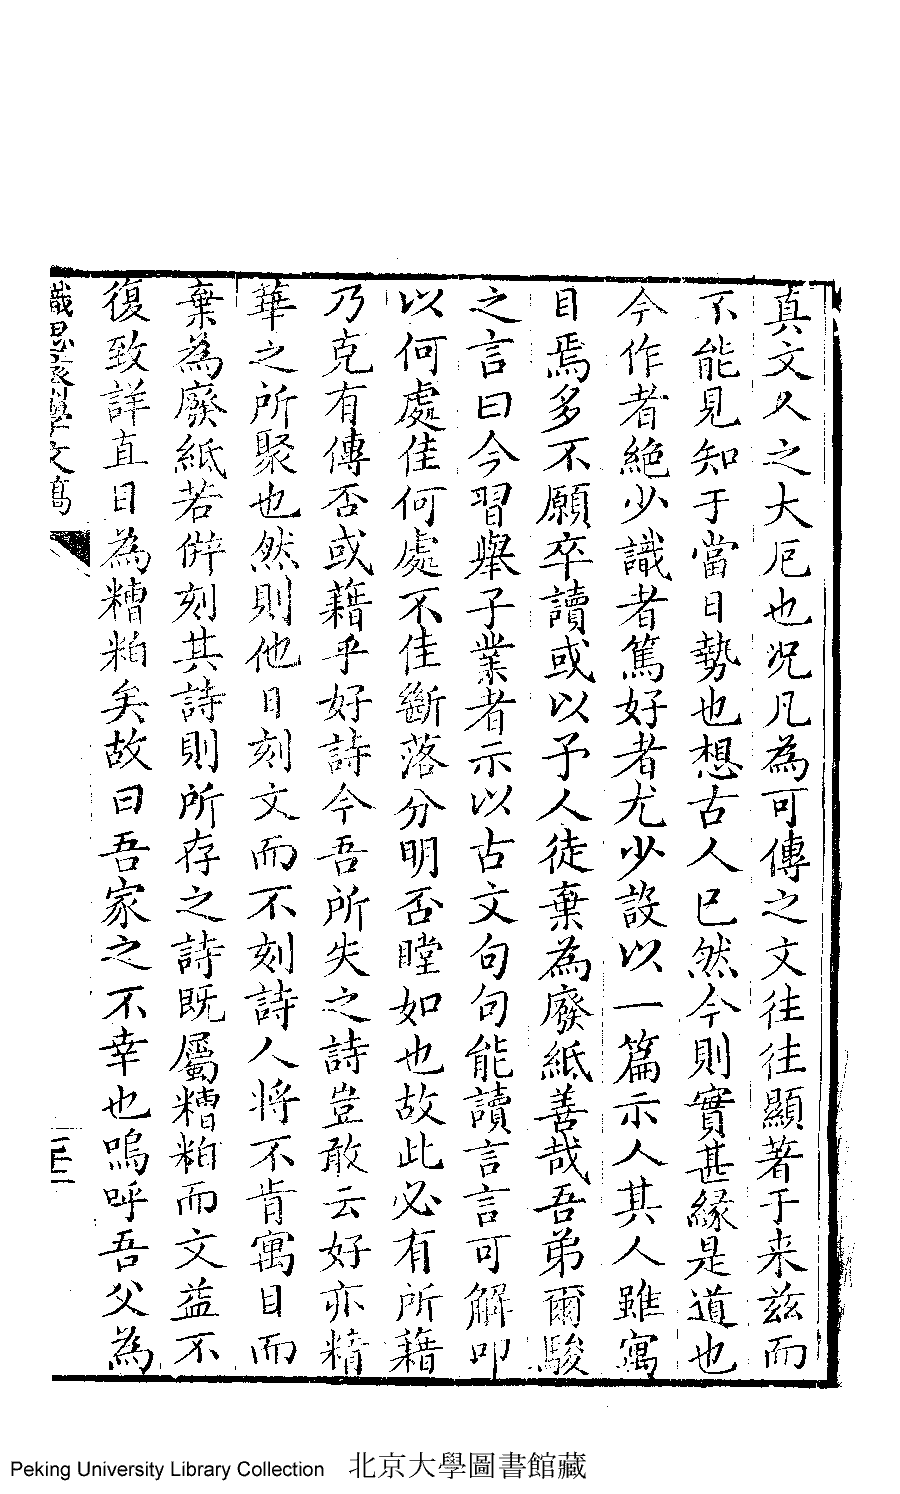 真文久之大厄也况凡為可傳之文往往顯著于来兹而
不能見知于當日勢也想古人已然今則實甚緣是道也
今作者絶少識者篤好者尤少設以一篇示人其人雖寓
目焉多不願卒讀或以予人徒棄為廢紙善哉吾弟爾駿
之言曰今習舉子業者示以古文句句能讀言言可解叩
以何處佳何處不佳斷落分明否瞠如也故此必有所藉
乃克有傳否或藉乎好詩今吾所失之詩豈敢云好亦精
華之所聚也然則他日刻文而不刻詩人将不肯寓目而
棄為廢紙若僻刻其詩則所存之詩既屬糟粕而文益不
復致詳直目為糟粕矣故曰吾家之不幸也嗚呼吾父為
識思 學文稿
Peking University Library Collection 北京大學圖書館藏